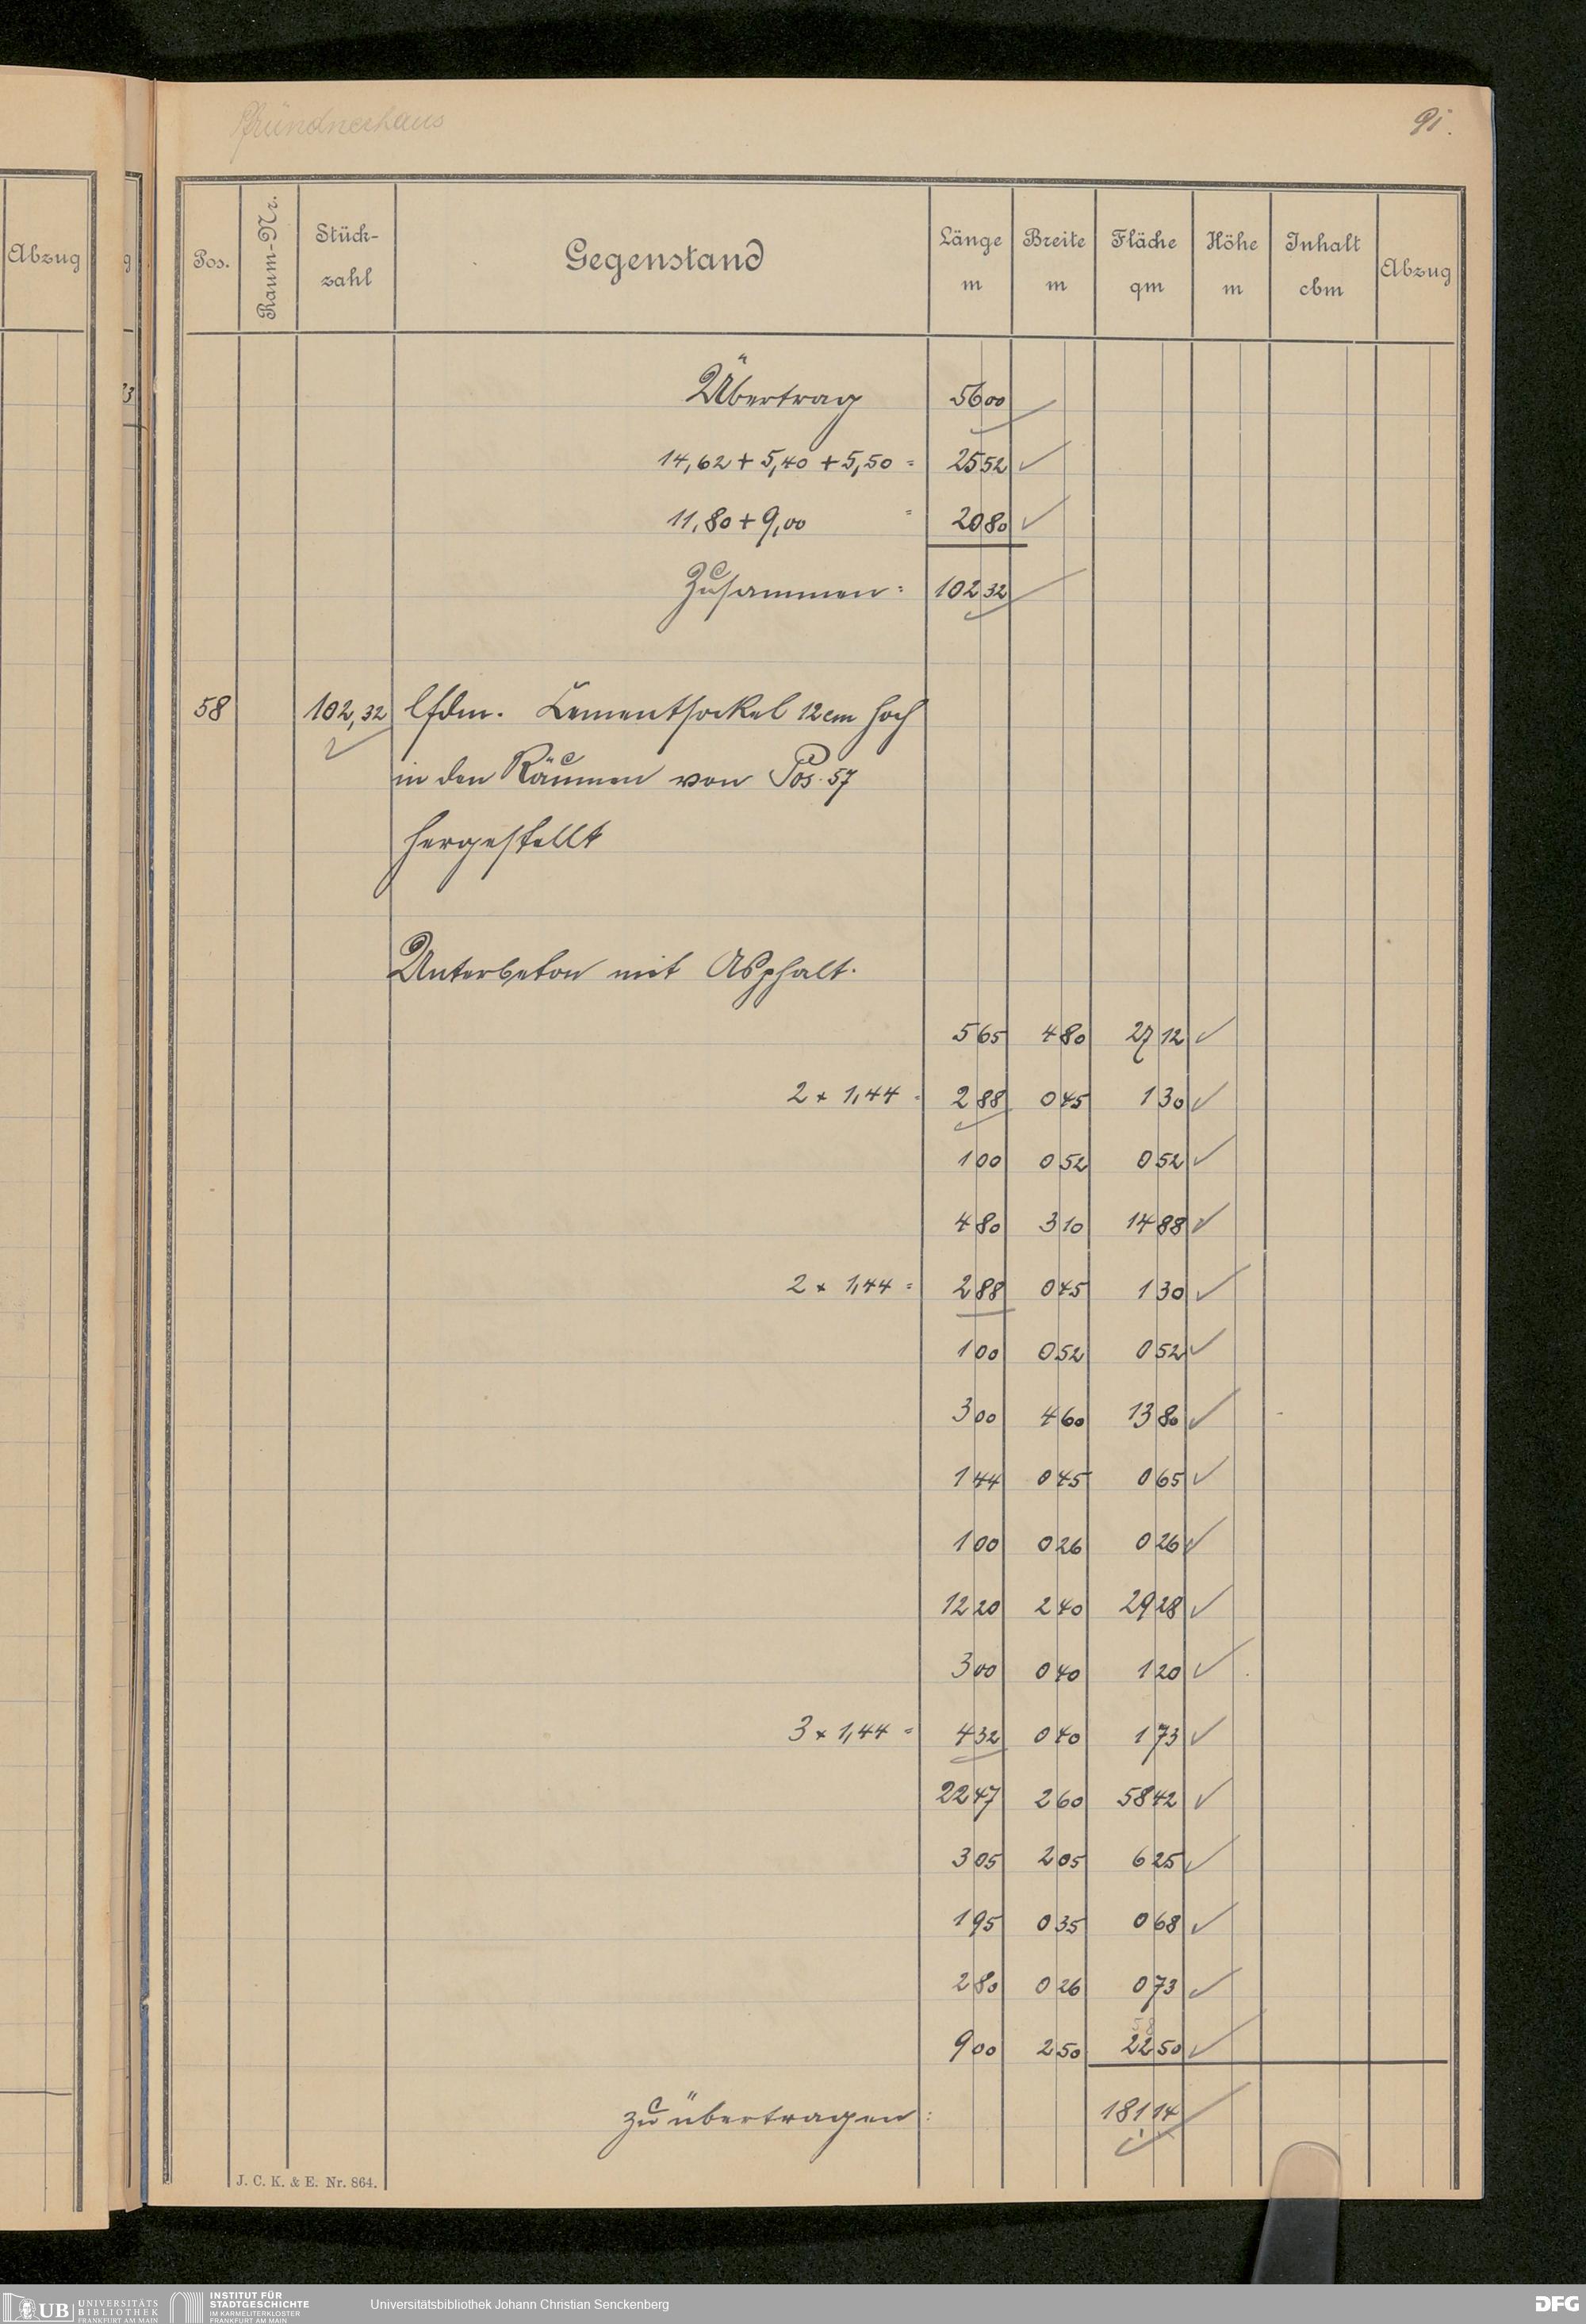 Pfründnerhaus
91.
Abzug
g
Pos. Raum-Nr. Stück-zahl Gegenstand Länge m Breite m Fläche qm Höhe m Inhalt cbm Abzug
Übertrag 56 00
14,62 + 5,40 + 5,50 = 25 52
11,80 + 9,00 = 20 80
Zusammen: 102 32
58 102,32 lfdm. Zementsockel 12 cm hoch
in den Räumen von Pos. 57
hergestellt
Unterbeton mit Asphalt.
5 65 4 80 27 12
2 x 1,44 = 2 88 0 45 1 30
1 00 0 52 0 52
4 80 3 10 14 88
2 x 1,44 = 2 88 0 45 1 30
1 00 0 52 0 52
3 00 4 60 13 80
1 44 0 45 0 65
1 00 0 26 0 26
12 20 2 40 29 28
3 00 0 40 1 20
3 x 1,44 = 4 32 0 40 1 73
22 47 2 60 58 42
3 05 2 05 6 25
1 95 0 35 0 68
2 80 0 26 0 73
9 00 2 50 22 50
zu übertragen: 181 14
J. C. K. & E. Nr. 864.
UB UNIVERSITÄTS BIBLIOTHEK FRANKFURT AM MAIN
INSTITUT FÜR STADTGESCHICHTE IM KARMELITERKLOSTER FRANKFURT AM MAIN
Universitätsbibliothek Johann Christian Senckenberg
DFG